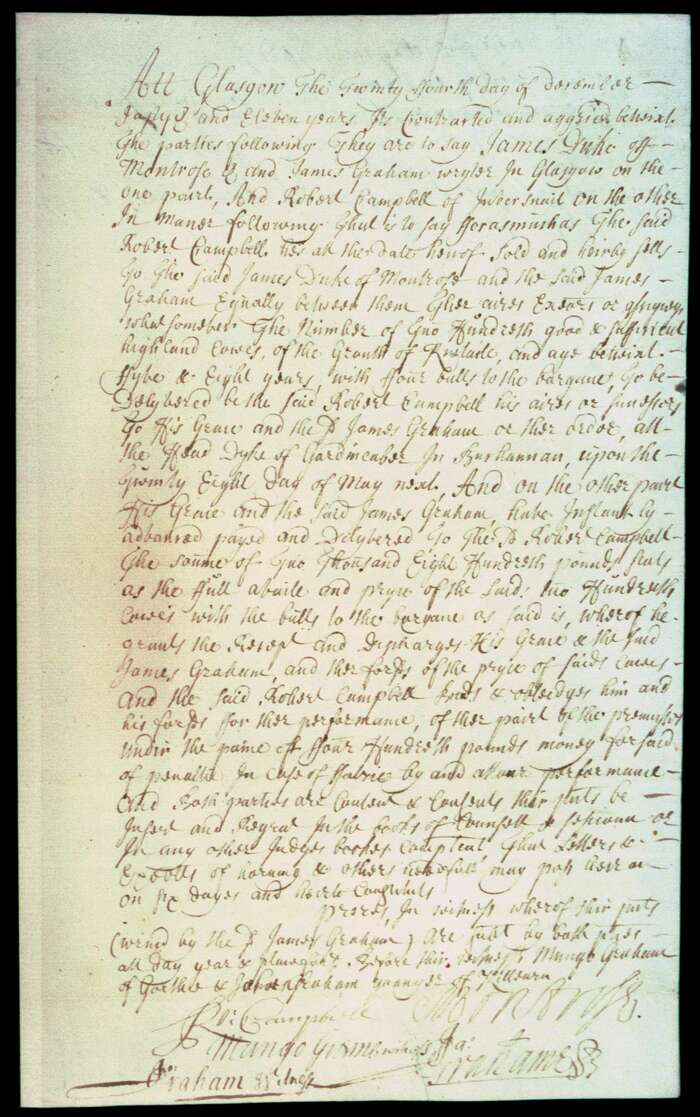 Att Glasgow The Twenty ffourth day of december
and Eleven years It's Contracted and aggried betwixt
The parties following They are to say James Duke off
Montrose & and James Graham wryter In Glasgow on the
one pairt, And Robert Campbell of Inversnait on the other
In maner following That is to say fforasmuchas The said
Robert Campbell hes att the date herof Sold and heirby sells
To The said James Duke of Montrose and the said James
Graham Equally between them Ther aires Exers or assigneys
whatsomever The Number of Two Hundreth good & sufficient
highland Cowes, of the Grouth of and age betwixt
ffyve & Eight years, with ffour bulls to the bargane, To be
Delyvered be the said Robert Campbell his aires or
To His Grace and the sd James Graham or ther order, att
the Dyke of In Buchannan, upon the
Twinty Eight Day of May next, And on the other pairt
His Grace and the said James Graham, have Instantly
advanced payed and Delyvered To The sd Robert Campbell
The soume of Two Thousand Eight Hundreth pounds Scots
as the ffull availe and pryce of the saids two Hundreth
Cowes with the bulls to the bargane as said is, wherof he
grants the Recept and Discharges His Grace & the said
James Graham, and ther forsds of the pryce of saids Cowes
And the said Robert Campbell binds & obleidges him and
his forsds ffor ther performance, of ther pairt of the premisses
Under the paine off ffour Hundreth pounds money forsaid
of penaltie In case of ffailzie by and attour performance
And Both parties are Content & Consents thir puts be
Insert and Regrat In the books of Counsell & sessioun or
In any other Judges bookes Compitent That Letters &
Exealls of horning & others needfull may pass heiron
on six dayes and heirto Constituts
Prores, In witness wherof thir puts
(writen by the sd James Graham) are subt by both pties
att day year & place forsd. Before thir witness's Mungo Graham
of Gorthie & John Graham younger of Killearn
Ro: Campbell Montrose
Mungo Grame witness Ja:
Graham witness Grahame